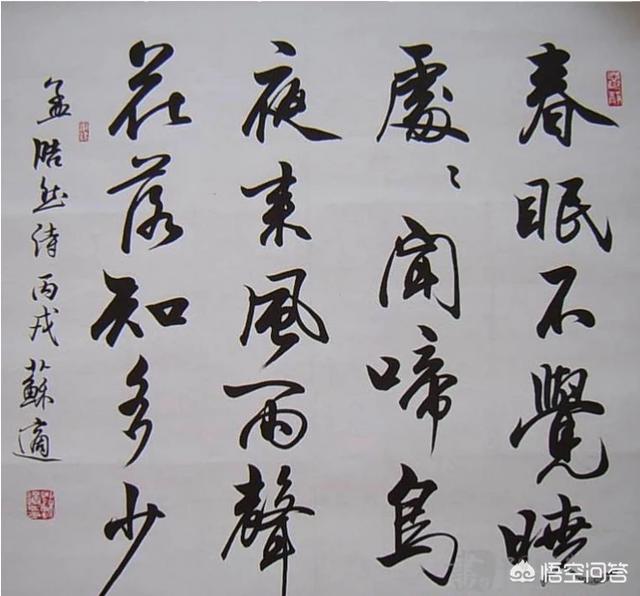 春眠不覺曉
處々聞啼鳥
夜来風雨聲
花落知多少
孟浩然诗 丙戌 蘇適
悟空问答